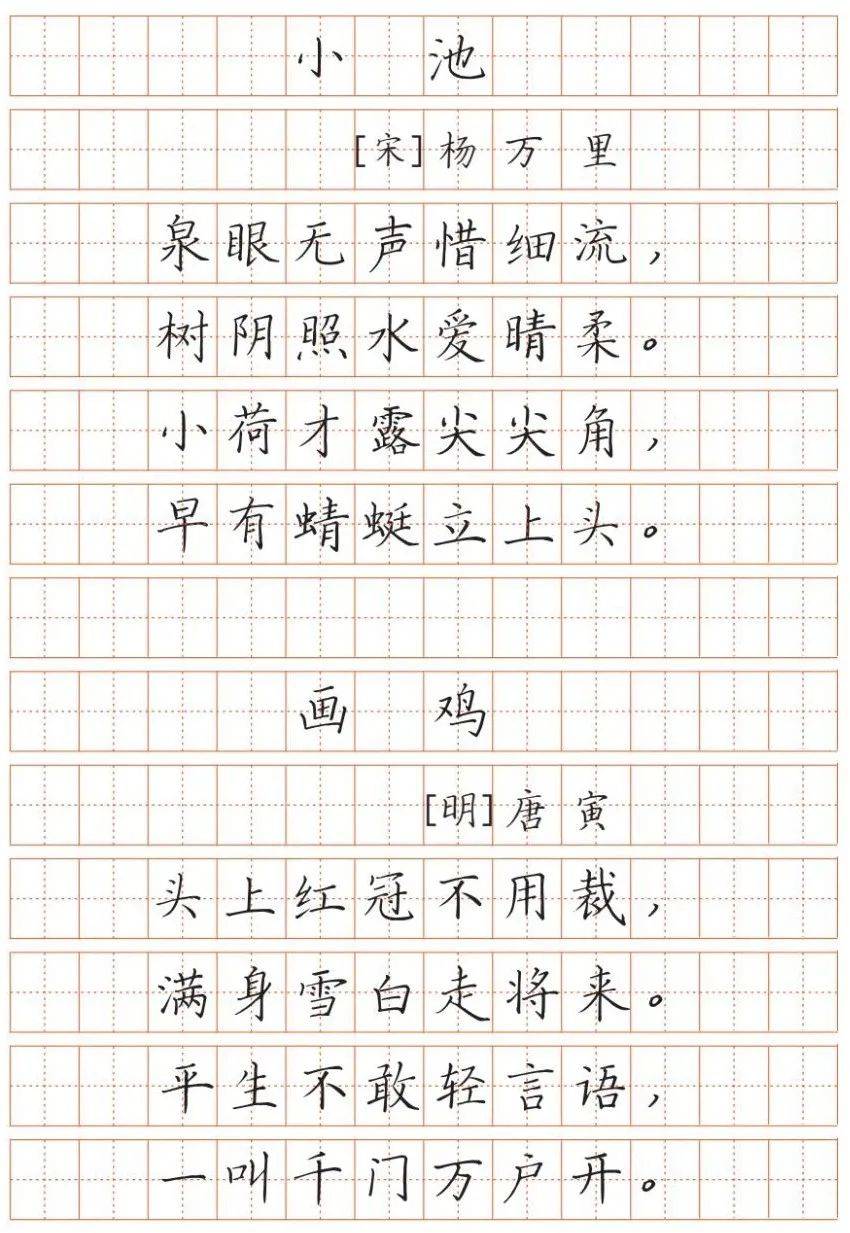 小池
[宋]杨万里
泉眼无声惜细流，
树阴照水爱晴柔。
小荷才露尖尖角，
早有蜻蜓立上头。
画鸡
[明]唐寅
头上红冠不用裁，
满身雪白走将来。
平生不敢轻言语，
一叫千门万户开。